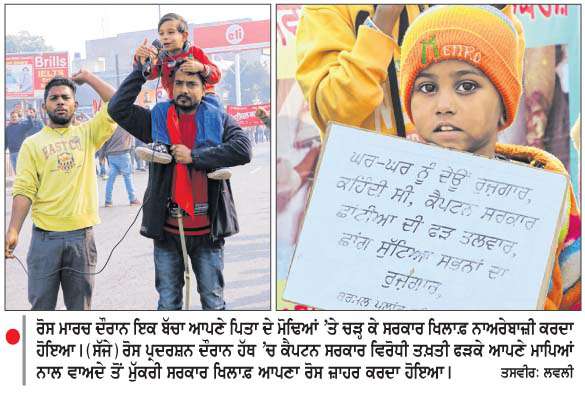 Brills
IELTS
eli
METRO
ਘਰ-ਘਰ ਨੂੰ ਦੇਊਂ ਰੁਜ਼ਗਾਰ,
ਕਹਿੰਦੀ ਸੀ, ਕੈਪਟਨ ਸਰਕਾਰ
ਛਾਂਟੀਆ ਦੀ ਫੜ ਤਲਵਾਰ,
ਛਾਂਗ ਸੁੱਟਿਆ ਸਭਨਾਂ ਦਾ
ਰੁਜ਼ਗਾਰ,
ਰੋਸ ਮਾਰਚ ਦੌਰਾਨ ਇਕ ਬੱਚਾ ਆਪਣੇ ਪਿਤਾ ਦੇ ਮੋਢਿਆਂ 'ਤੇ ਚੜ੍ਹ ਕੇ ਸਰਕਾਰ ਖਿਲਾਫ਼ ਨਾਅਰੇਬਾਜ਼ੀ ਕਰਦਾ
ਹੋਇਆ। (ਸੱਜੇ) ਰੋਸ ਪ੍ਰਦਰਸ਼ਨ ਦੌਰਾਨ ਹੱਥ 'ਚ ਕੈਪਟਨ ਸਰਕਾਰ ਵਿਰੋਧੀ ਤਖ਼ਤੀ ਫੜਕੇ ਆਪਣੇ ਮਾਪਿਆਂ
ਨਾਲ ਵਾਅਦੇ ਤੋਂ ਮੁੱਕਰੀ ਸਰਕਾਰ ਖਿਲਾਫ਼ ਆਪਣਾ ਰੋਸ ਜ਼ਾਹਰ ਕਰਦਾ ਹੋਇਆ।
ਤਸਵੀਰ: ਲਵਲੀ